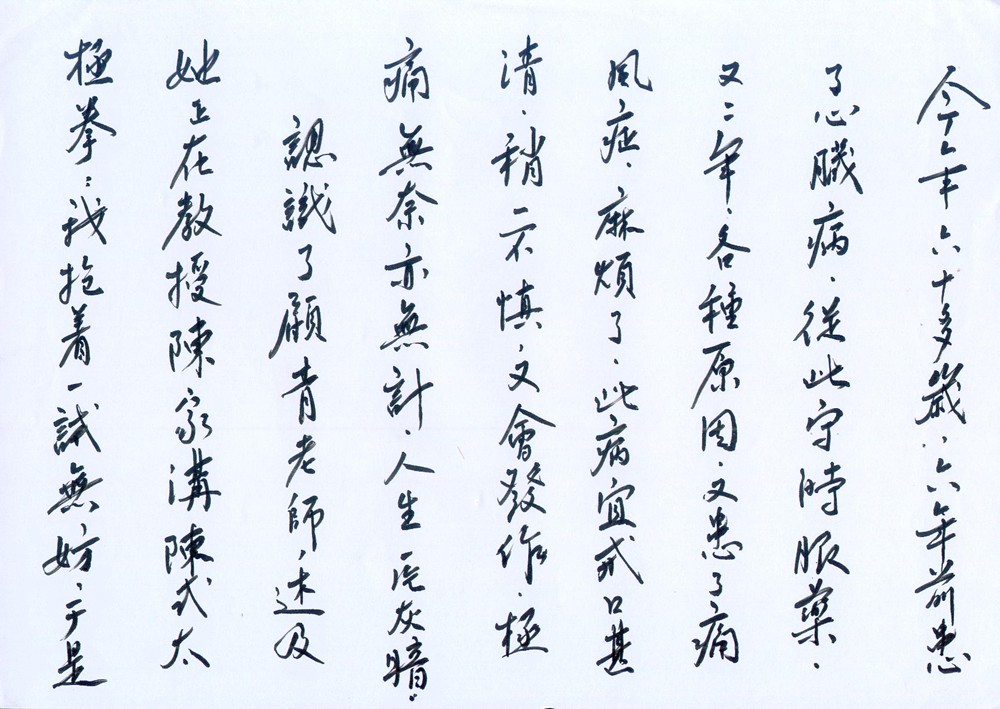 今年六十多歲，六年前患
了心臟病，從此守時服藥，
又二年，各種原因，又患了痛
風症，麻煩了，此病宜戒口甚
清，稍一不慎，又會發作，極
痛，無奈亦無計，人生一片灰暗。
認識了顧青老師，述及
她正在教授陳家溝陳式太
極拳；我抱着一試無妨，于是